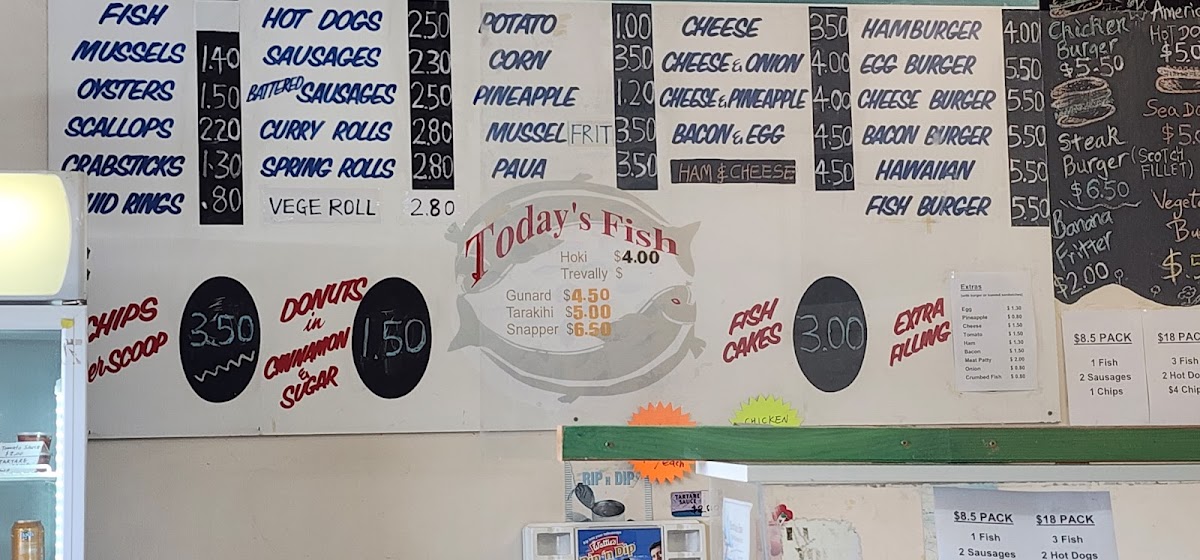 FISH
MUSSELS 1.40
OYSTERS 1.50
SCALLOPS 2.20
CRABSTICKS 1.30
UID RINGS .80
HOT DOGS 2.50
SAUSAGES 2.30
BATTERED SAUSAGES 2.50
CURRY ROLLS 2.80
SPRING ROLLS 2.80
VEGE ROLL 2.80
POTATO 1.00
CORN 3.50
PINEAPPLE 1.20
MUSSEL FRIT 3.50
PAUA 3.50
CHEESE 3.50
CHEESE & ONION 4.00
CHEESE & PINEAPPLE 4.00
BACON & EGG 4.50
HAM & CHEESE 4.50
HAMBURGER 4.00
EGG BURGER 5.50
CHEESE BURGER 5.50
BACON BURGER 5.50
HAWAIIAN 5.50
FISH BURGER 5.50
Chicken
Burger
$5.50
Steak
Burger (SCOTCH
FILLET)
$6.50
Banana
Fritter
$2.00
Americ
HOT DO
$5.
Sea D
$5.
Veget
Bu
$5.
Today's Fish
Hoki $4.00
Trevally $
Gunard $4.50
Tarakihi $5.00
Snapper $6.50
CHIPS
er SCOOP
3.50
DONUTS
in
CINNAMON
&
SUGAR
1.50
FISH
CAKES
3.00
EXTRA
FILLING
Extras
Egg $ 1.30
Pineapple $ 0.80
Cheese $ 1.50
Tomato $ 1.50
Ham $ 1.30
Bacon $ 1.50
Meat Patty $ 2.00
Onion $ 0.80
Crumbed Fish $ 0.80
$8.5 PACK
1 Fish
2 Sausages
1 Chips
$18 PAC
3 Fish
2 Hot Do
$4 Chip
CHICKEN
/each
DIP n DIP
TARTARE
SAUCE
Wattie's
Dip'n Dip
Tomato Sauce
TARTARE
$8.5 PACK
1 Fish
2 Sausages
$18 PACK
3 Fish
2 Hot Dogs